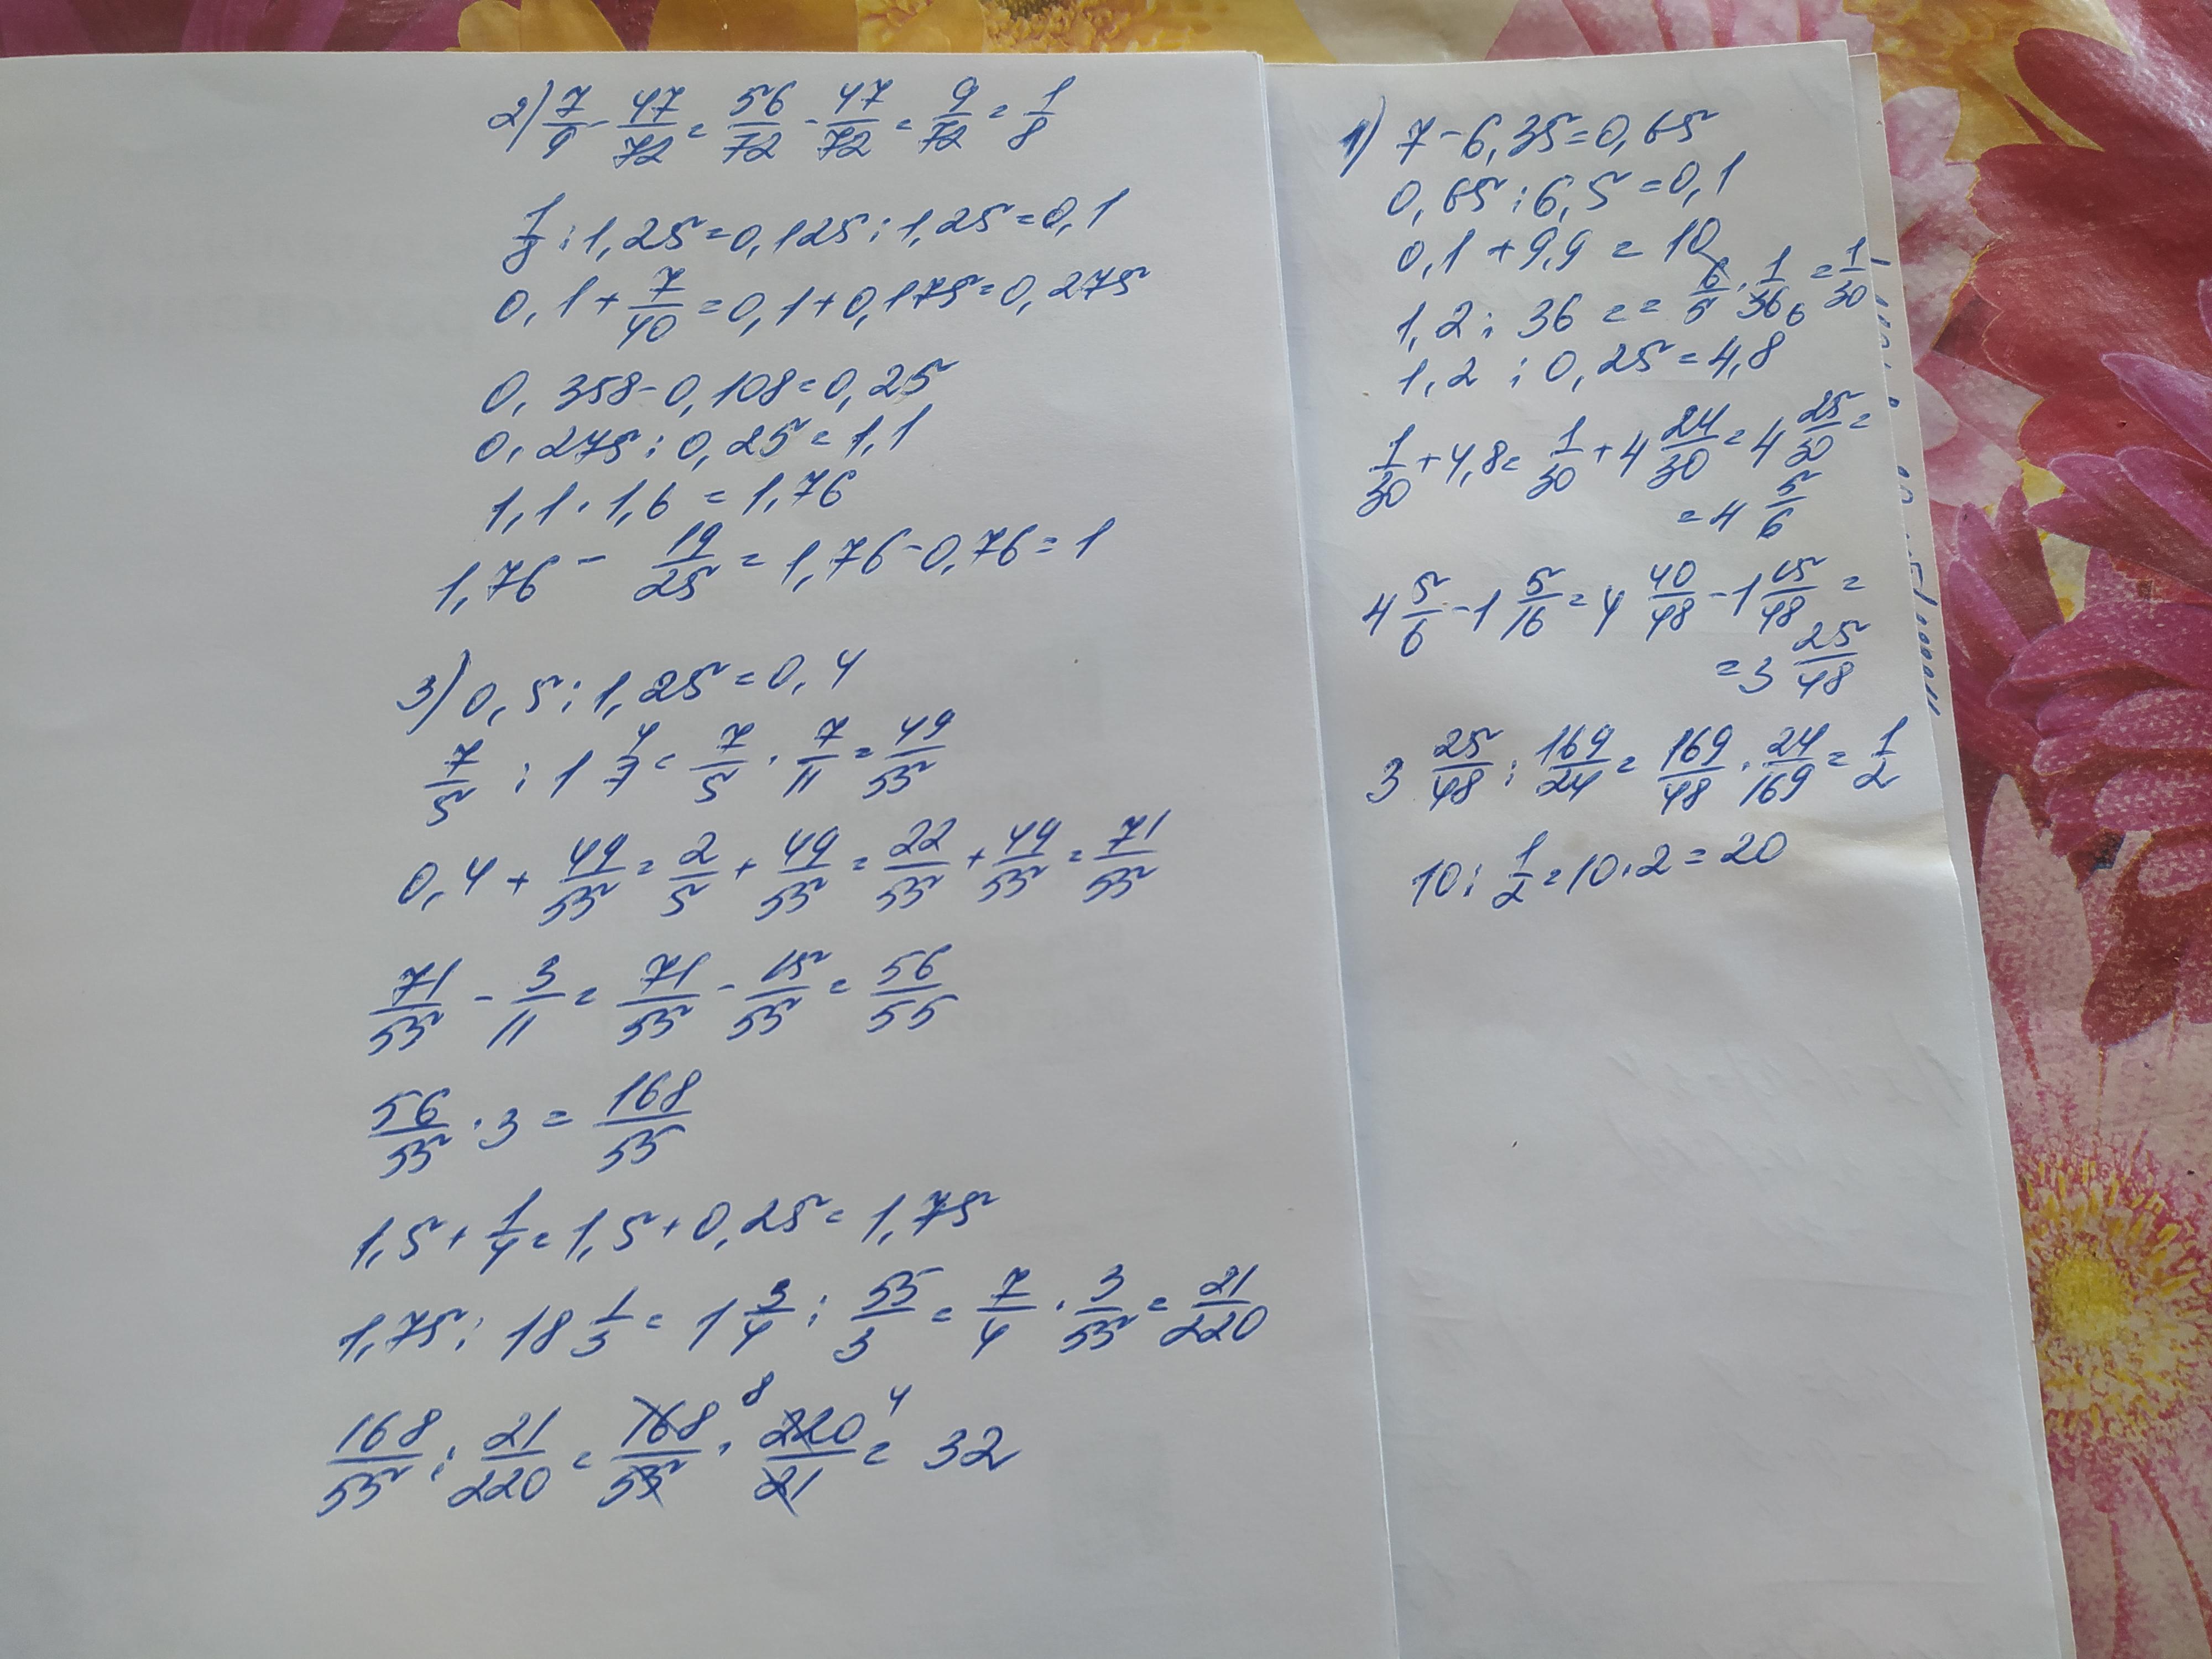 2) 7/9 - 47/72 = 56/72 - 47/72 = 9/72 = 1/8
1/8 : 1,25 = 0,125 : 1,25 = 0,1
0,1 + 7/40 = 0,1 + 0,175 = 0,275
0,358 - 0,108 = 0,25
0,275 : 0,25 = 1,1
1,1 · 1,6 = 1,76
1,76 - 19/25 = 1,76 - 0,76 = 1
3) 0,5 : 1,25 = 0,4
7/5 : 1 4/7 = 7/5 · 7/11 = 49/55
0,4 + 49/55 = 2/5 + 49/55 = 22/55 + 49/55 = 71/55
71/55 - 3/11 = 71/55 - 15/55 = 56/55
56/55 · 3 = 168/55
1,5 + 1/4 = 1,5 + 0,25 = 1,75
1,75 : 18 1/3 = 1 3/4 : 55/3 = 7/4 · 3/55 = 21/220
168/55 : 21/220 = 168 8/55 · 220 4/21 = 32
1) 7 - 6,35 = 0,65
0,65 : 6,5 = 0,1
0,1 + 9,9 = 10
1,2 : 36 = = 6/5 · 1/36 6 = 1/30
1,2 : 0,25 = 4,8
1/30 + 4,8 = 1/30 + 4 24/30 = 4 25/30 =
= 4 5/6
4 5/6 - 1 5/16 = 4 40/48 - 1 15/48 =
= 3 25/48
3 25/48 : 169/24 = 169/48 · 24/169 = 1/2
10 : 1/2 = 10 · 2 = 20